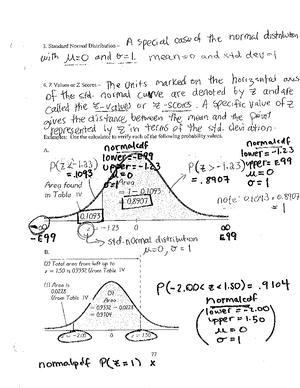 3. Standard Normal Distribution - A special case of the normal distribution
with μ=0 and σ=1. mean=0 and std dev=1
6. Z Values or Z Scores - The units marked on the horizontal axis
of the std. normal curve are denoted by z and are
called the z-values or z-scores. A specific value of z
gives the distance between the mean and the point
represented by z in terms of the std. deviation.
Examples: Use the calculator to verify each of the following probability values.
A.
normalcdf
lower=-E99
upper=-1.23
μ=0
σ=1
P(z<-1.23)
=.1093
Area found
in Table IV
0.1093
Area
= 1 - 0.1093
= 0.8907
P(z>-1.23)
= .8907
normalcdf
lower=-1.23
upper=E99
μ=0
σ=1
note: 0.1093+0.8907
=1
-∞
-E99
z
-1.23
0
∞
E99
std. normal distribution
μ=0, σ=1
B.
(2) Total area from left up to
z = 1.50 is 0.9332 (from Table IV
(1) Area is
0.0228
(from Table IV
(3)
Area
= 0.9332 - 0.0228
= 0.9104
z = -2.00
0
z = 1.50
P(-2.00<z<1.50)=.9104
normalcdf
lower=-2.00
upper=1.50
μ=0
σ=1
77
normalpdf P(z=1) x